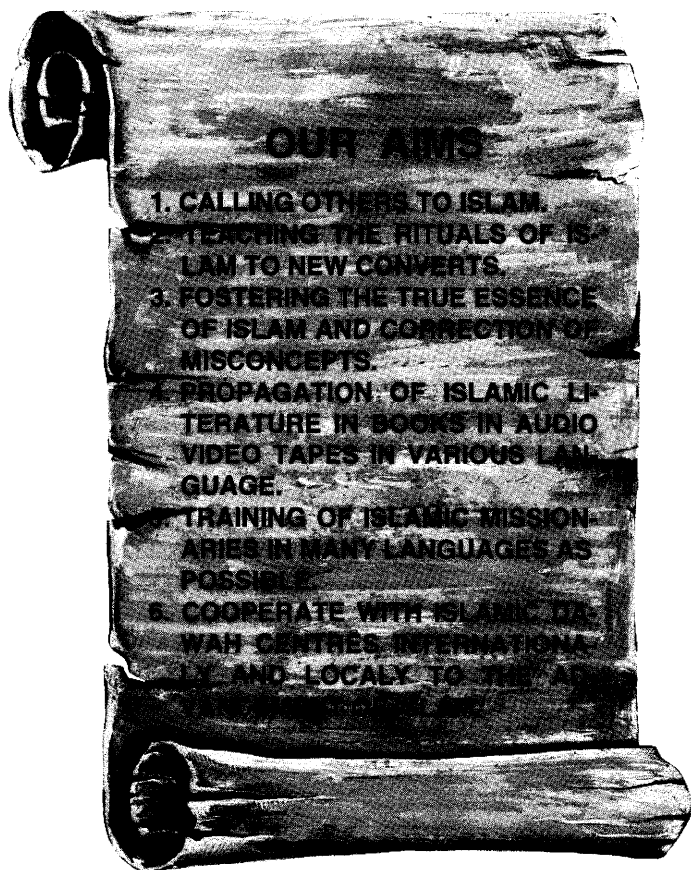 OUR AIMS
1. CALLING OTHERS TO ISLAM.
2. TEACHING THE RITUALS OF IS-
LAM TO NEW CONVERTS.
3. FOSTERING THE TRUE ESSENCE
OF ISLAM AND CORRECTION OF
MISCONCEPTS.
4. PROPAGATION OF ISLAMIC LI-
TERATURE IN BOOKS IN AUDIO
VIDEO TAPES IN VARIOUS LAN-
GUAGE.
5. TRAINING OF ISLAMIC MISSION-
ARIES IN MANY LANGUAGES AS
POSSIBLE
6. COOPERATE WITH ISLAMIC DA-
WAH CENTRES INTERNATIONA-
LY AND LOCALY TO THE AD-